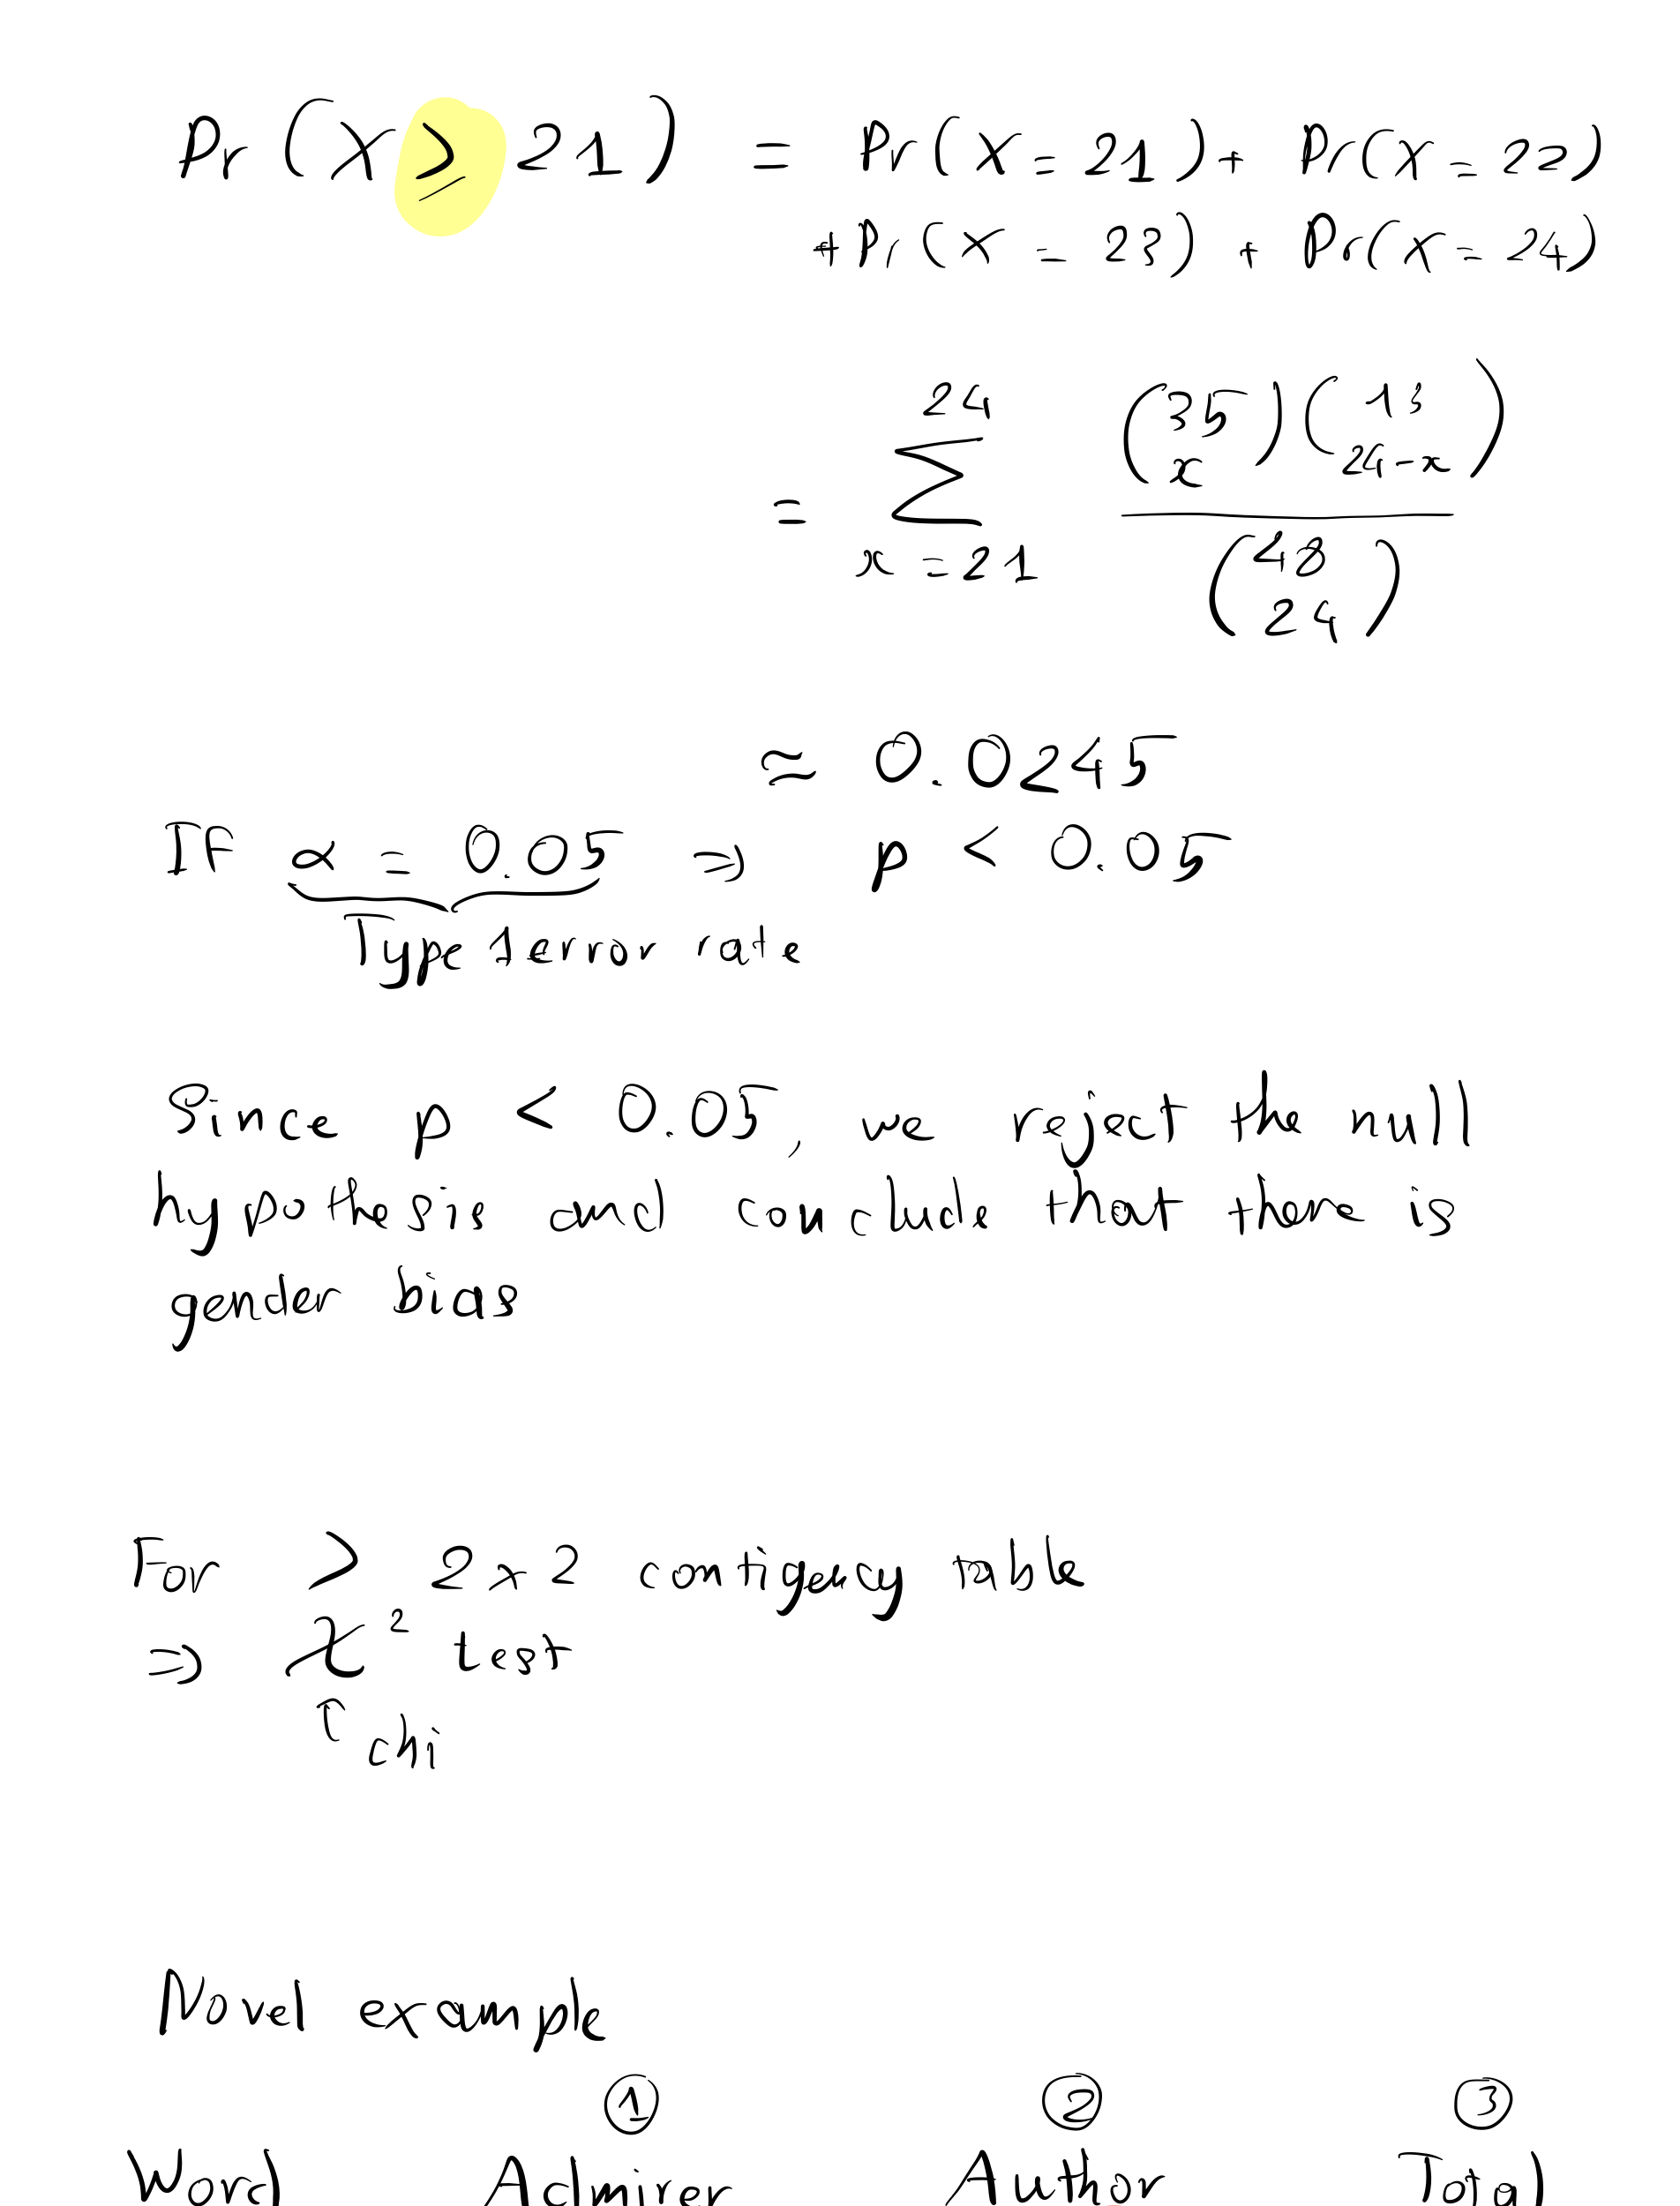 Pr (X ≥ 21) = Pr(X = 21) + Pr(X = 22)
+ Pr(X = 23) + Pr(X = 24)
= \sum_{x=21}^{24} \frac{\binom{35}{x}\binom{13}{24-x}}{\binom{48}{24}}
≈ 0.0245
If α = 0.05 ⇒ p < 0.05
Type 1 error rate
Since p < 0.05, we reject the null
hypothesis and conclude that there is
gender bias
For > 2x2 contigecy table
⇒ χ² test
↑ chi
Novel example
① ② ③
Word Admirer Author Total